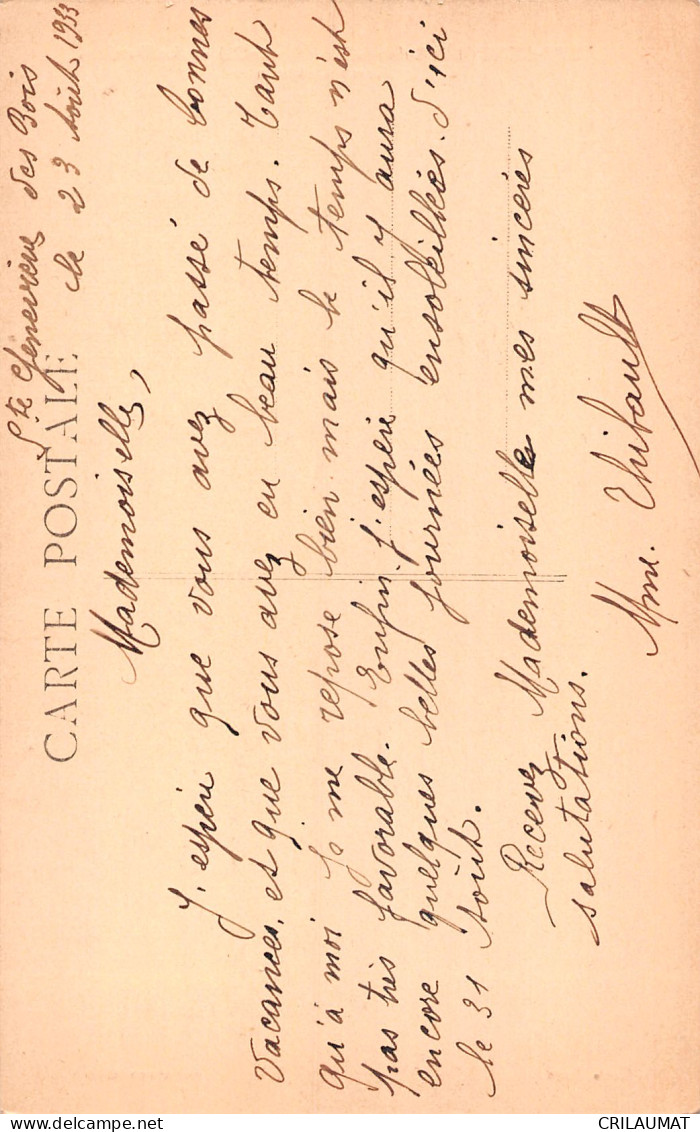 Ste Geneviève des Bois
le 23 Août 1933
CARTE POSTALE
Mademoiselle,
J'espère que vous avez passé de bonnes
vacances, et que vous avez eu beau temps. Tant
qu'à moi je me repose bien mais le temps n'est
pas très favorable. Enfin j'espère qu'il y aura
encore quelques belles journées ensoleillées d'ici
le 31 août.
Recevez Mademoiselle mes sincères
salutations.
Mme. Thibault
CRILAUMAT